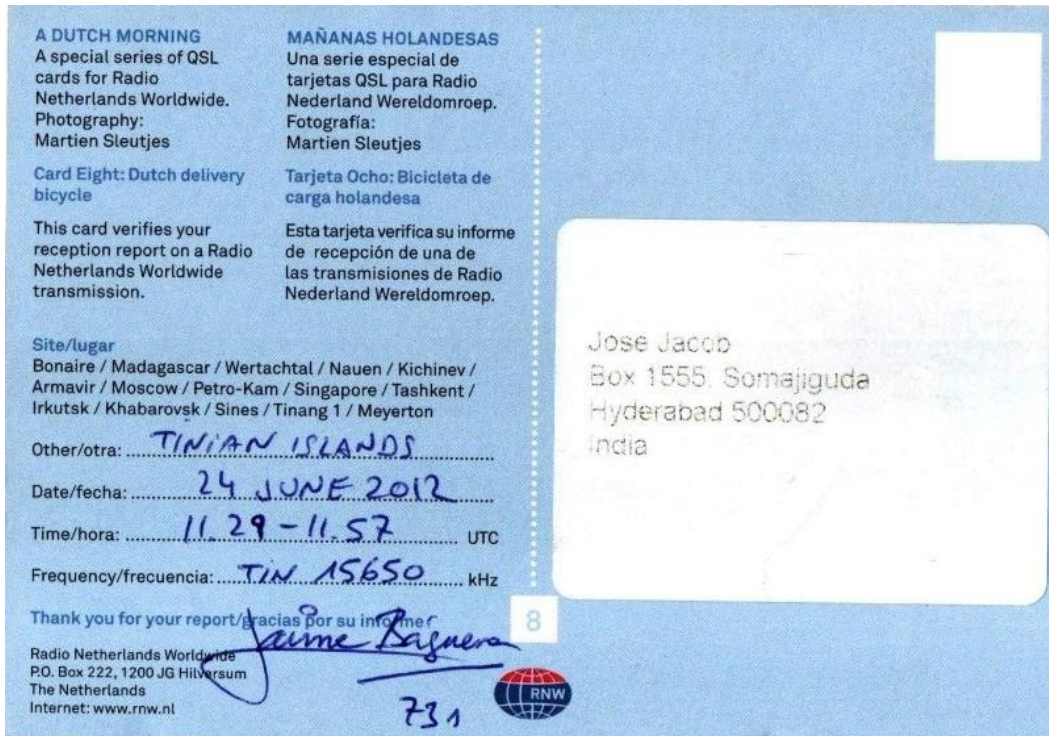 A DUTCH MORNING
A special series of QSL
cards for Radio
Netherlands Worldwide.
Photography:
Martien Sleutjes
Card Eight: Dutch delivery
bicycle
This card verifies your
reception report on a Radio
Netherlands Worldwide
transmission.
MAÑANAS HOLANDESAS
Una serie especial de
tarjetas QSL para Radio
Nederland Wereldomroep.
Fotografía:
Martien Sleutjes
Tarjeta Ocho: Bicicleta de
carga holandesa
Esta tarjeta verifica su informe
de recepción de una de
las transmisiones de Radio
Nederland Wereldomroep.
Site/lugar
Bonaire / Madagascar / Wertachtal / Nauen / Kichinev /
Armavir / Moscow / Petro-Kam / Singapore / Tashkent /
Irkutsk / Khabarovsk / Sines / Tinang 1 / Meyerton
Other/otra: TINIAN ISLANDS
Date/fecha: 24 JUNE 2012
Time/hora: 11.29 - 11.57 UTC
Frequency/frecuencia: TIN 15650 kHz
Thank you for your report/gracias por su informe
Jaime Baguena
731
Radio Netherlands Worldwide
P.O. Box 222, 1200 JG Hilversum
The Netherlands
Internet: www.rnw.nl
8
RNW
Jose Jacob
Box 1555, Somajiguda
Hyderabad 500082
India